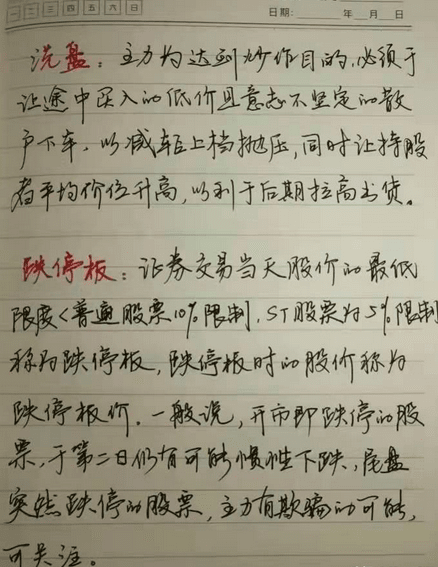 一 二 三 四 五 六 日
日期: 年 月 日
洗盘：主力为达到炒作目的,必须于
让途中买入的低价且意志不坚定的散
户下车,以减轻上档抛压,同时让持股
者平均价位升高,以利于后期拉高出货。
跌停板：证券交易当天股价的最低
限度<普通股票10%限制,ST股票为5%限制
称为跌停板,跌停板时的股价称为
跌停板价.一般说,开市即跌停的股
票,于第二日仍有可能惯性下跌,尾盘
突然跌停的股票,主力有欺骗的可能,
可关注。